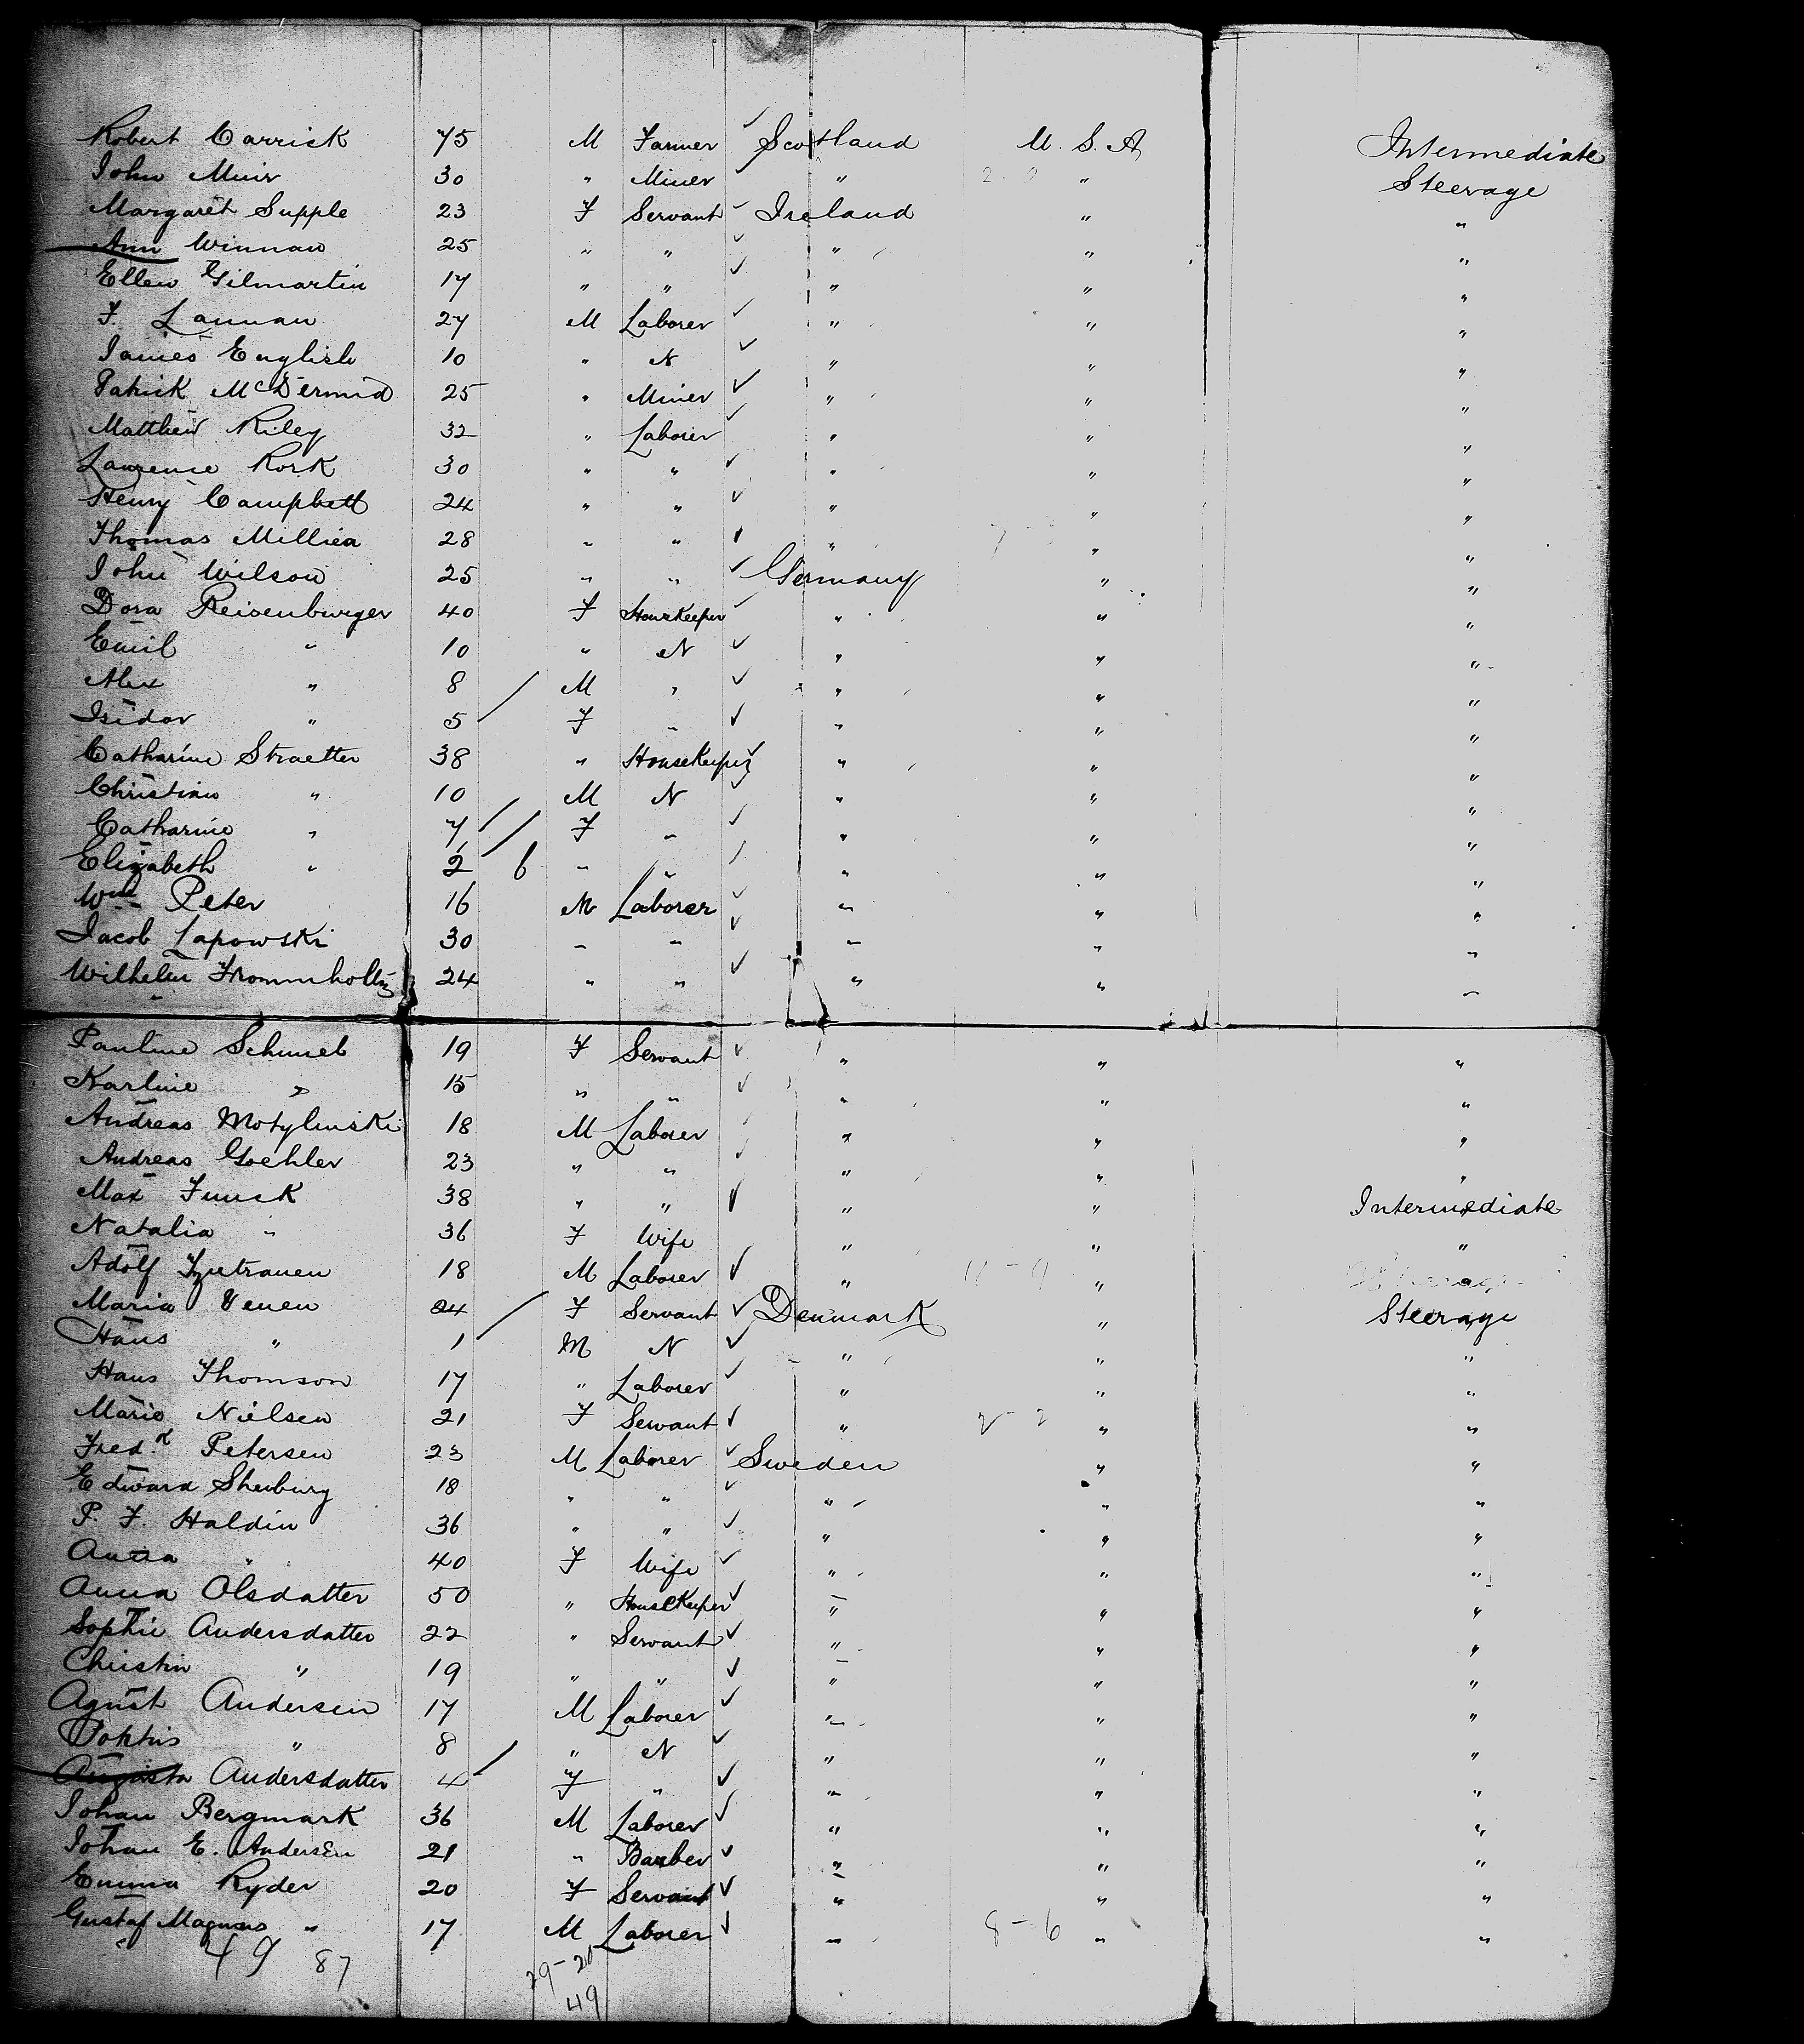 Robert Carrick 75 M Farmer ✓ Scotland U. S. A. Intermediate
John Muir 30 " Miner ✓ " 2 - 0 " Steerage
Margaret Supple 23 F Servant ✓ Ireland " "
Ann Winnan 25 " " ✓ " " "
Ellen Gilmartin 17 " " ✓ " " "
F. Lannan 27 M Laborer ✓ " " "
James English 10 " N ✓ " " "
Patrick McDermid 25 " Miner ✓ " " "
Matthew Riley 32 " Laborer ✓ " " "
Lawrence Rork 30 " " ✓ " " "
Henry Campbell 24 " " ✓ " " "
Thomas Milliea 28 " " ✓ " " "
John Wilson 25 " " ✓ Germany " "
Dora Reisenburger 40 F Housekeeper ✓ " " "
Emil " 10 " N ✓ " " "
Alex " 8 / M " ✓ " " "
Isidor " 5 / F " ✓ " " "
Catharine Straetter 38 " HouseKeeper ✓ " " "
Christian " 10 M N ✓ " " "
Catharine " 7 / F " ✓ " " "
Elizabeth " 2 / 6 " " ✓ " " "
Wm Peter 16 M Laborer ✓ " " "
Jacob Lapowski 30 " " ✓ " " "
Wilhelm Frommholtz 24 " " ✓ " " "
Pauline Schmeb 19 F Servant ✓ " " "
Karline " 15 " " ✓ " " "
Andreas Motylinski 18 M Laborer ✓ " " "
Andreas Goehler 23 " " ✓ " " "
Max Funck 38 " " ✓ " " Intermediate
Natalia " 36 F Wife " " "
Adolf 18 M Laborer ✓ " 11 - 9 "
Maria Venen 24 F Servant ✓ Denmark " Steerage
Hans " 1 / M N ✓ " " "
Hans Thomson 17 " Laborer ✓ " " "
Marie Nielsen 21 F Servant ✓ " 2 - 2 " "
Fred.k Petersen 23 M Laborer ✓ Sweden " "
Edward Shenburg 18 " " ✓ " " "
P. F. Haldin 36 " " ✓ " " "
Anna " 40 F Wife ✓ " " "
Anna Olsdatter 50 " HouseKeeper ✓ " " "
Sophie Andersdatter 22 " Servant ✓ " " "
Christin " 19 " " ✓ " " "
Agust Andersen 17 M Laborer ✓ " " "
" 8 / " N ✓ " " "
Augusta Andersdatter 4 F " ✓ " " "
Johan Bergmark 36 M Laborer ✓ " " "
Johan E. Andersen 21 " Barber ✓ " " "
Emma Ryder 20 F Servant ✓ " " "
Gustaf Magnus " 17 M Laborer ✓ " 8 - 6 " "
49 87 29 - 20
49